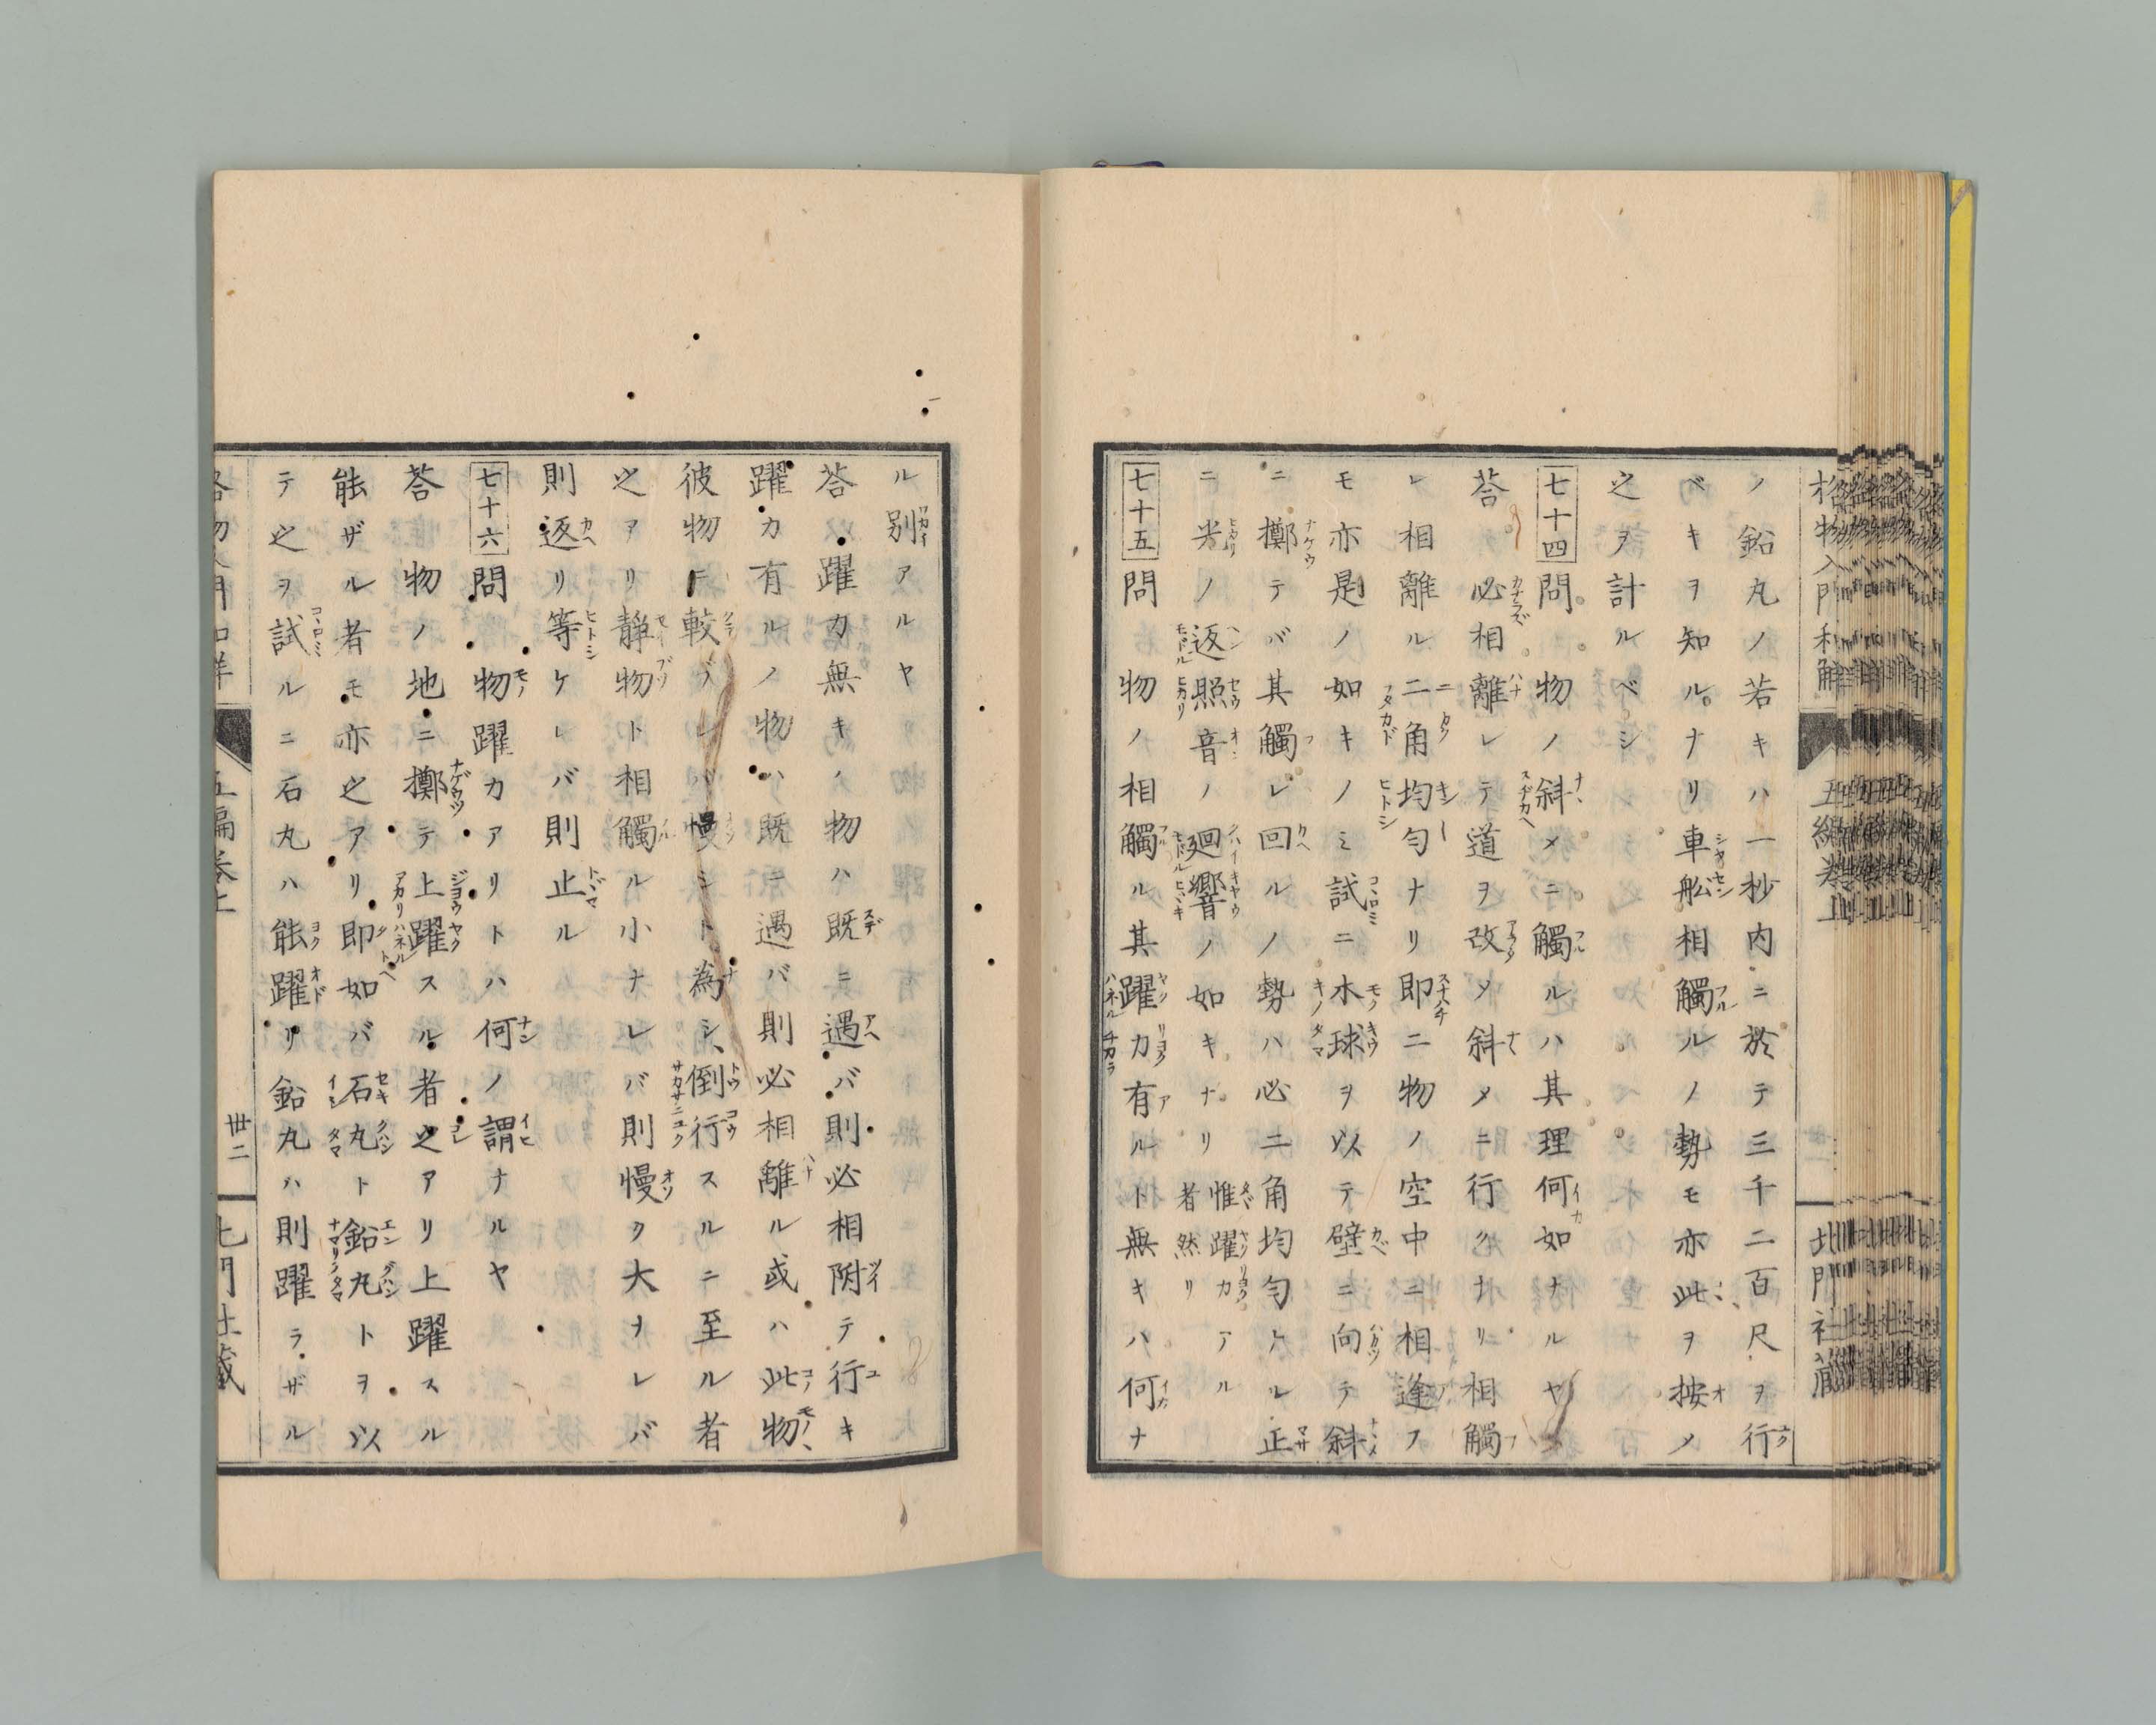 格物入門和解 五編巻上 北門社蔵
ノ鉛丸ノ若キハ一秒内ニ於テ三千二百尺ヲ行
ベキヲ知ルナリ車舩相觸ルノ勢モ亦此ヲ按メ
之ヲ計ルベシ
七十四 問 物ノ斜メニ觸ルハ其理何如ナルヤ
荅 必相離レテ道ヲ改メ斜メニ行クナリ相觸
レ相離ル二角均匀ナリ即ニ物ノ空中ニ相逢フ
モ亦是ノ如キノミ試ニ木球ヲ以テ壁ニ向テ斜
ニ擲テバ其觸レ回ルノ勢ハ必二角均匀ケルル正
ニ光ノ返照音ノ廻響ノ如キナリ 惟躍力アル者然リ
七十五 問 物ノ相觸ル其躍力有ルト無キハ何ナ
ル別アルヤ
荅 躍力無キノ物ハ既ニ遇バ則必相附テ行キ
躍力有ルノ物ハ既ニ遇バ則必相離ル或ハ此物
彼物ニ較ブレバ慢シト為シ倒行スルニ至ル者
之アリ靜物ト相觸ル小ナレバ則慢ク大ナレバ
則返リ等ケレバ則止ル
七十六 問 物躍力アリトハ何ノ謂ナルヤ
荅 物ノ地ニ擲テ上躍スル者之アリ上躍スル
能ザル者モ亦之アリ即如バ石丸ト鉛丸トヲ以
テ之ヲ試ルニ石丸ハ能躍リ鉛丸ハ則躍ラザル
五編巻上 卅二 北門社藏